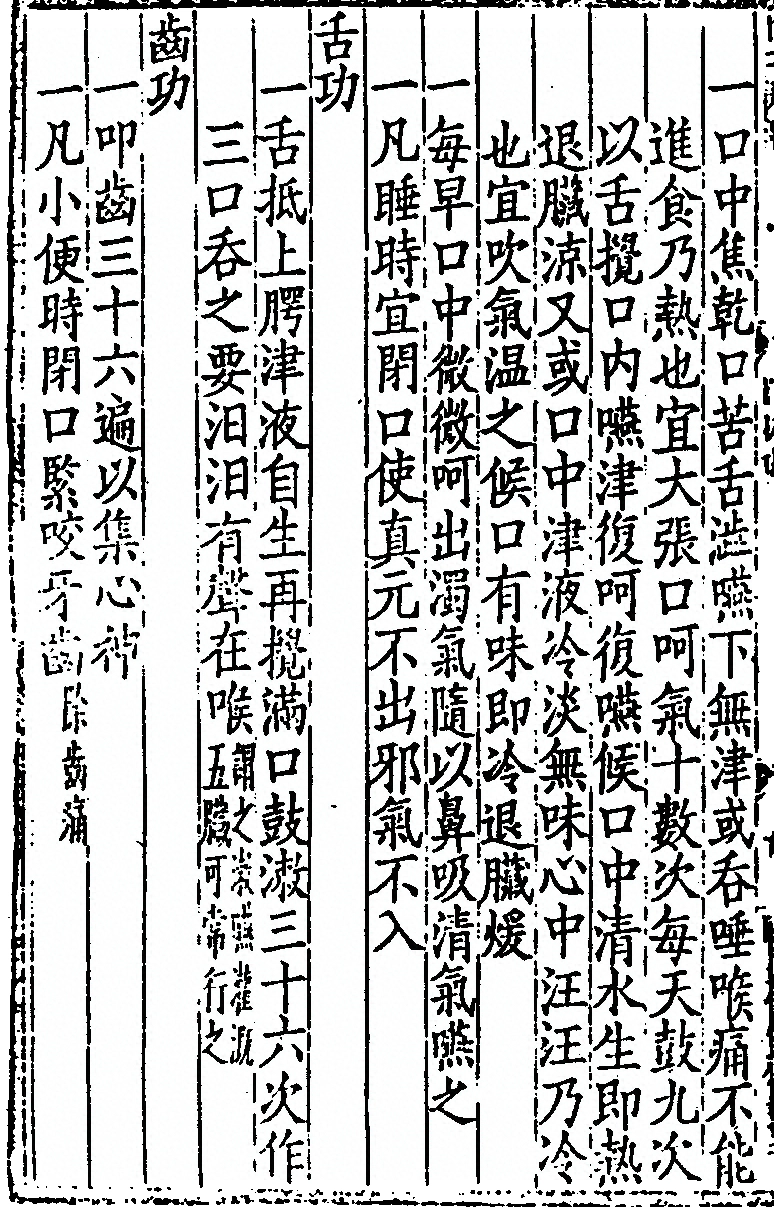 一口中焦乾口苦舌澁嚥下無津或吞唾喉痛不能
進食乃熱也宜大張口呵氣十數次每天鼓九次
以舌攪口内嚥津復呵復嚥候口中清水生即熱
退臟涼又或口中津液冷淡無味心中汪汪乃冷
也宜吹氣温之候口有味即冷退臟煖
一每早口中微微呵出濁氣隨以鼻吸清氣嚥之
一凡睡時宜閉口使真元不出邪氣不入
舌功
一舌抵上腭津液自生再攪滿口鼓漱三十六次作
三口吞之要汨汨有聲在喉謂之漱嚥灌溉
五臟可常行之
齒功
一叩齒三十六遍以集心神
一凡小便時閉口緊咬牙齒除齒痛